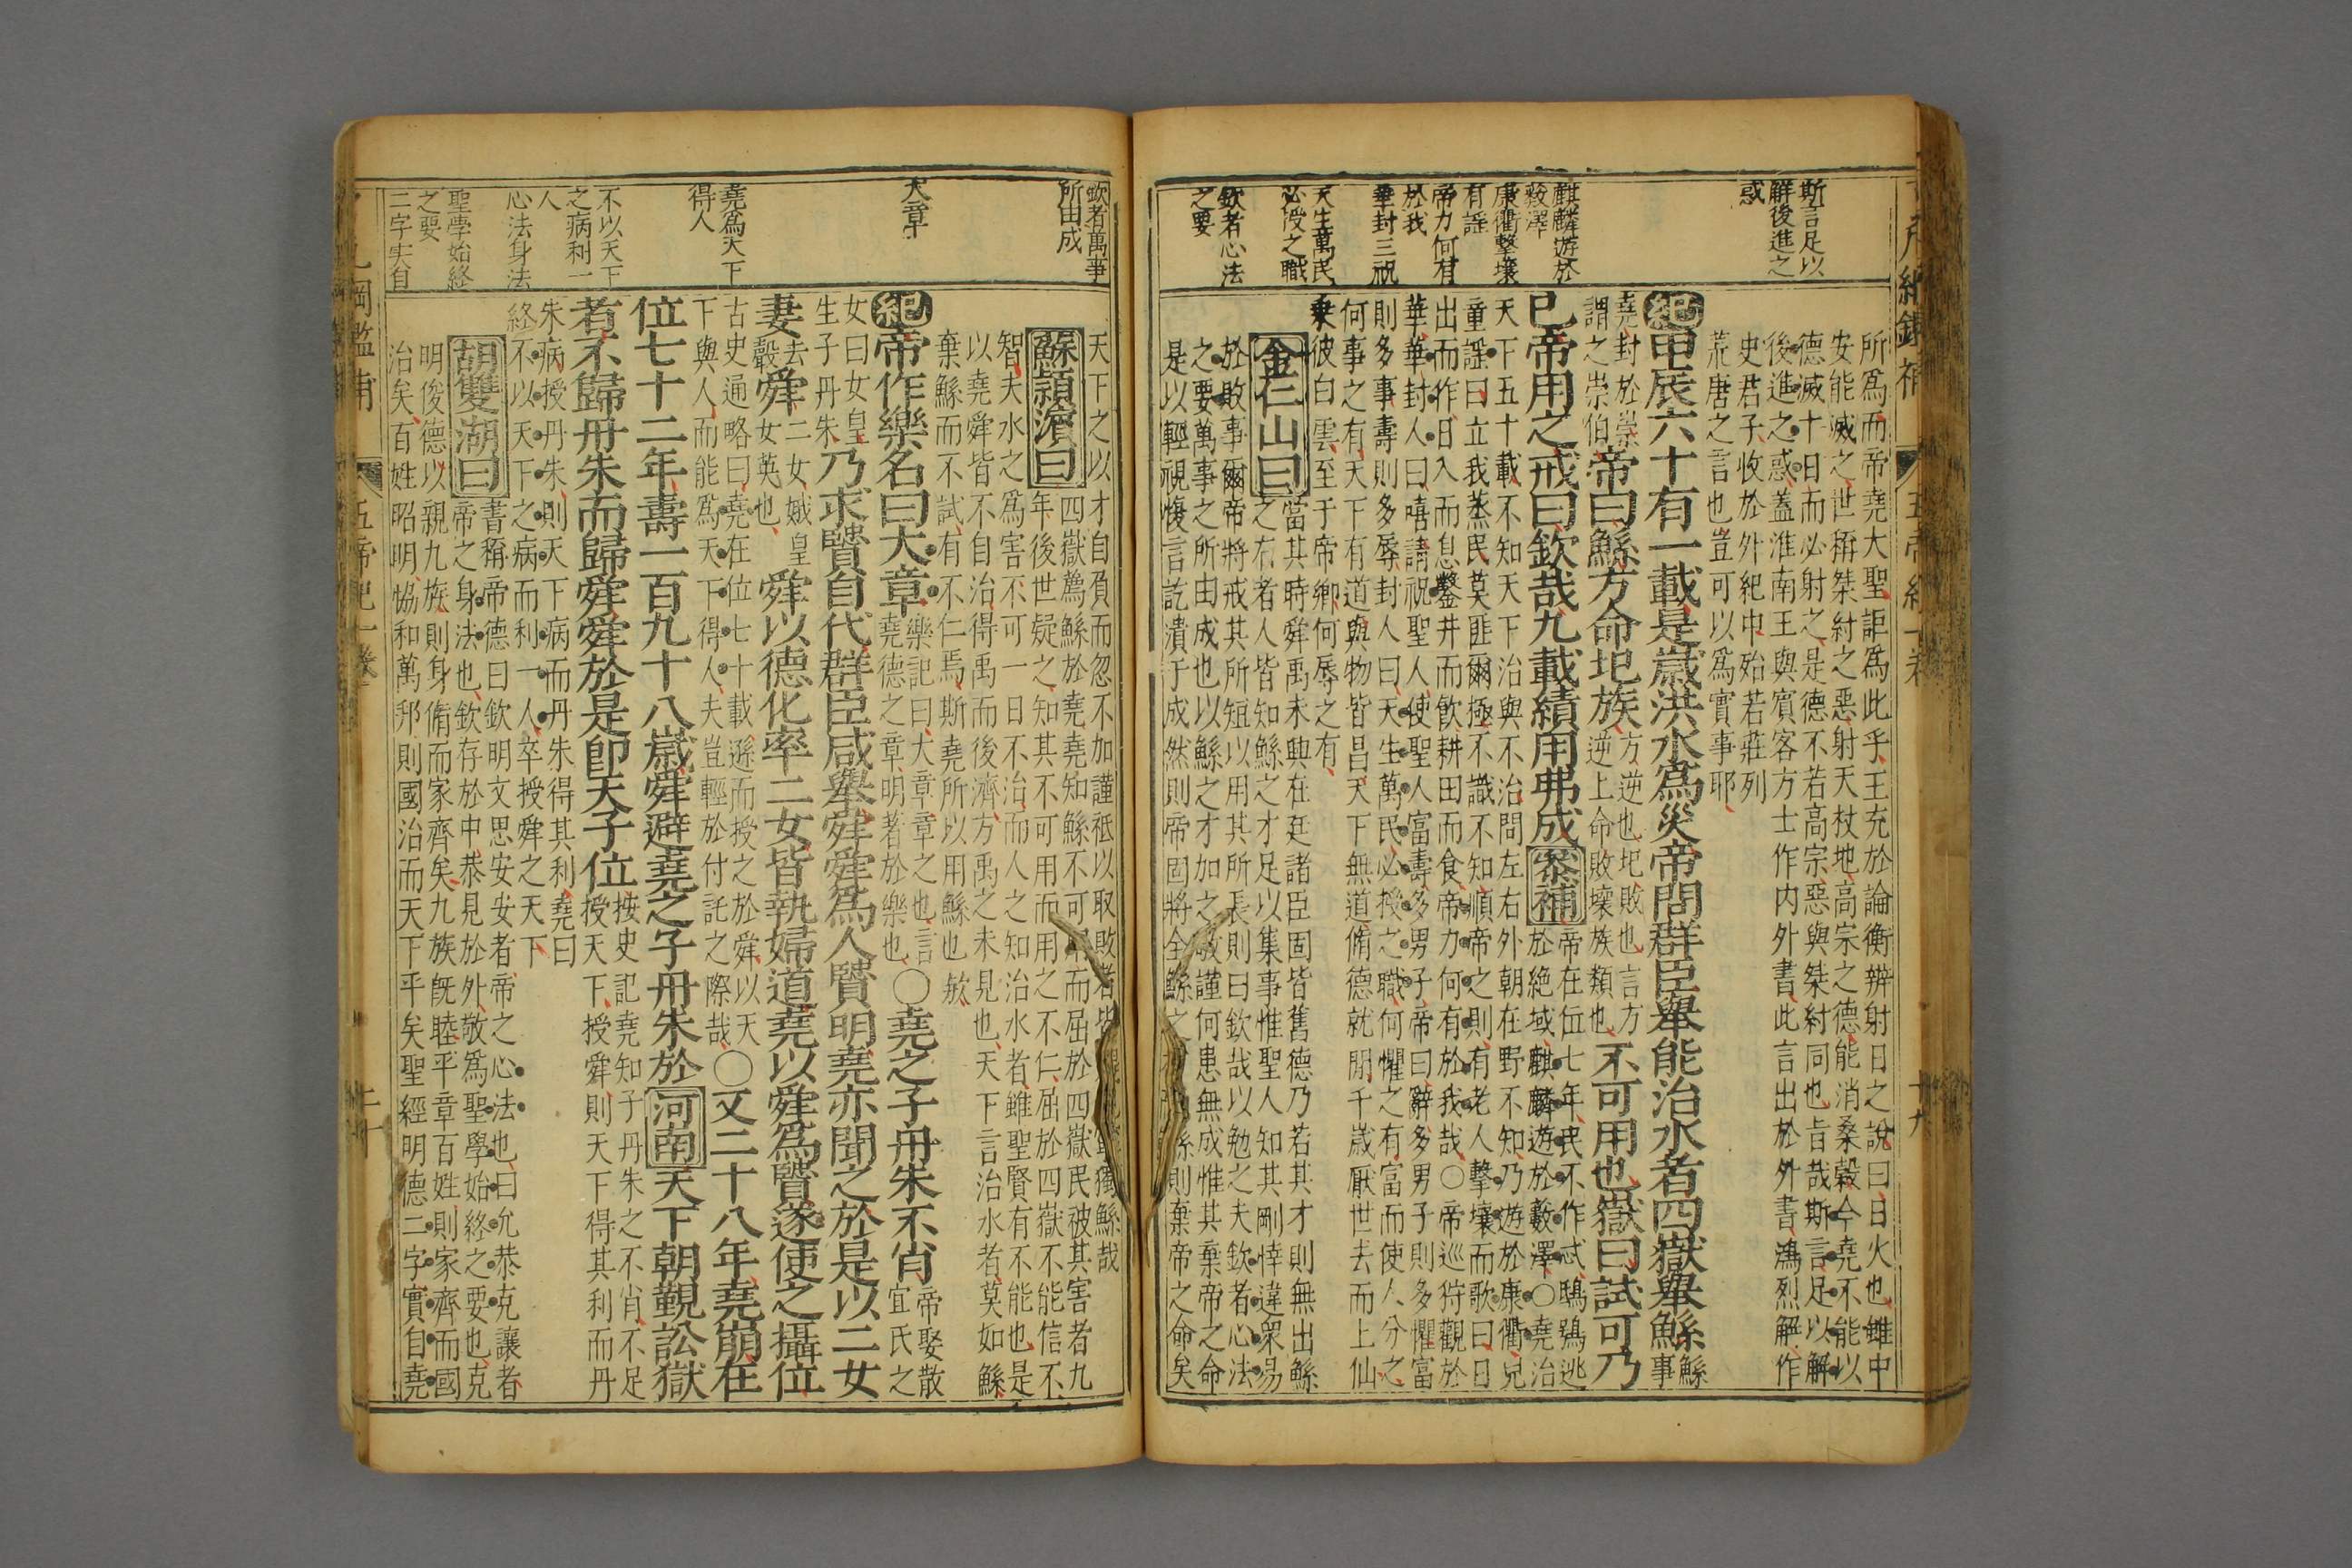 斯言足以
解後進之
惑
麒麟遊於
藪澤
康衢擊壤
有謠
帝力何有
於我
華封三祝
天生萬民
必授之職
欽者心法
之要
所爲而帝堯大聖詎爲此乎王充於論衡辨射日之說曰日火也雖中
安能滅之世稱桀紂之惡射天杖地高宗之德能消桑榖今堯不能以
德滅十日而必射之是德不若高宗惡與桀紂同也旨哉斯言足以解
後進之惑蓋淮南王與賓客方士作内外書此言出於外書鴻烈解作
史君子收於外紀中殆若莊列
荒唐之言也豈可以爲實事耶
紀甲辰六十有一載是歲洪水爲災帝問群臣舉能治水者四嶽舉鯀鯀事
堯封於崇
謂之崇伯帝曰鯀方命圮族方逆也圮敗也言方
逆上命敗壞族類也不可用也嶽曰試可乃
已帝用之戒曰欽哉九載績用弗成叅補帝在位七年民不作忒鴟鴞逃
於絶域麒麟遊於藪澤〇堯治
天下五十載不知天下治與不治問左右外朝在野不知乃遊於康衢兒
童謠曰立我蒸民莫匪爾極不識不知順帝之則有老人擊壤而歌曰日
出而作日入而息鑿井而飲耕田而食帝力何有於我哉〇帝巡狩觀於
華華封人曰嘻請祝聖人使聖人富壽多男子帝曰辭多男子則多懼富
則多事壽則多辱封人曰天生萬民必授之職何懼之有富而使人分之
何事之有天下有道與物皆昌天下無道脩德就閒千歲厭世去而上仙
乘彼白雲至于帝鄉何辱之有
金仁山曰當其時舜禹未興在廷諸臣固皆舊德乃若其才則無出鯀
之右者人皆知鯀之才足以集事惟聖人知其剛悻違衆易
於敗事爾帝將戒其所短以用其所長則曰欽哉以勉之夫欽者心法
之要萬事之所由成也以鯀之才加之敬謹何患無成惟其棄帝之命
是以輕視愎言訖潰于成然則帝固將全鯀之鯀則棄帝之命矣
五帝紀一卷
十九
欽者萬事
所由成
大章
堯爲天下
得人
不以天下
之病利一
人
心法身法
聖學始終
之要
二字実自
天下之以才自負而忽不加謹祗以取敗者皆獨鯀哉
蘇潁濱曰四嶽薦鯀於堯堯知鯀不可而屈於四嶽民被其害者九
年後世疑之知其不可用而用之不仁屈於四嶽不能信不
智夫水之爲害不可一日不治而人之知治水者雖聖賢有不能也是
以堯舜皆不自治得禹而後濟方禹之未見也天下言治水者莫如鯀
棄鯀而不試有不仁焉斯堯所以用鯀也歟
紀帝作樂名曰大章樂記曰大章章之也言
堯德之章明著於樂也〇堯之子丹朱不肖帝娶散
宜氏之
女曰女皇
生子丹朱乃求賢自代群臣咸舉舜舜爲人賢明堯亦聞之於是以二女
妻去
聲舜二女娥皇
女英也舜以德化率二女皆執婦道堯以舜爲賢遂使之攝位
古史通略曰堯在位七十載遜而授之於舜以天
下與人而能爲天下得人夫豈輕於付託之際哉〇又二十八年堯崩在
位七十二年壽一百九十八歲舜避堯之子丹朱於河南天下朝覲訟獄
者不歸丹朱而歸舜舜於是卽天子位按史記堯知子丹朱之不肖不足
授天下授舜則天下得其利而丹
朱病授丹朱則天下病而丹朱得其利堯曰
終不以天下之病而利一人卒授舜之天下
胡雙湖曰書稱帝德曰欽明文思安安者帝之心法也曰允恭克讓者
帝之身法也欽存於中恭見於外敬爲聖學始終之要也克
明俊德以親九族則身脩而家齊矣九族旣睦平章百姓則家齊而國
治矣百姓昭明恊和萬邦則國治而天下平矣聖經明德二字實自堯
綱鑑補
五帝紀一卷
二十